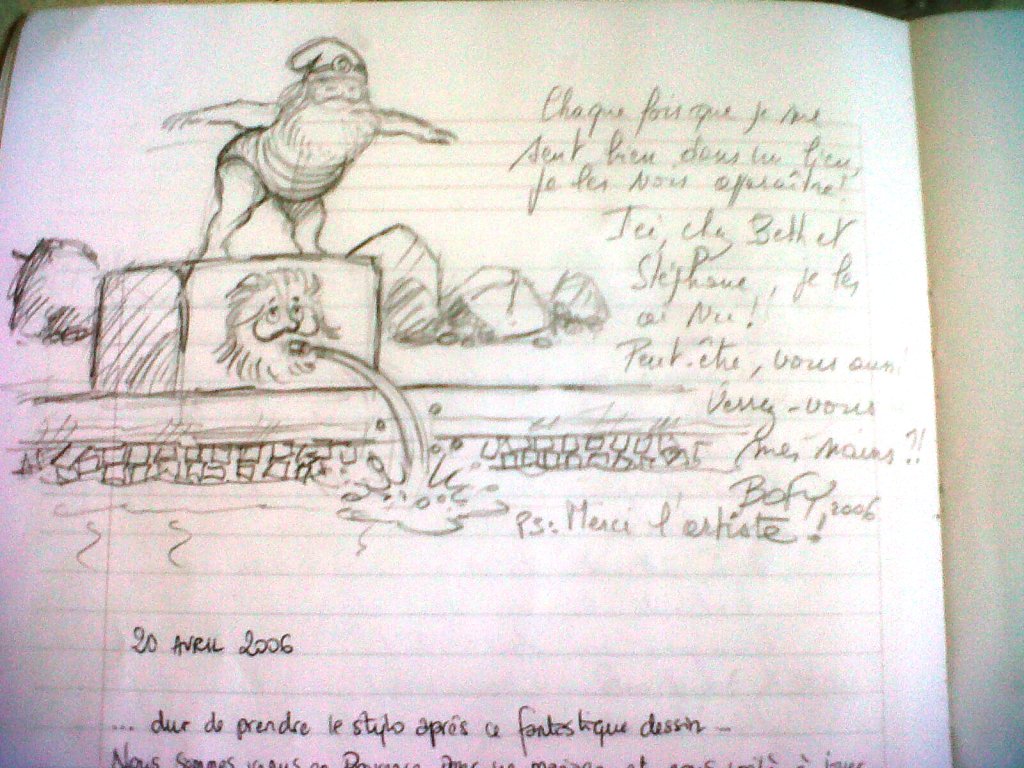 Chaque fois que je me
sent bien dans un lieu,
je les vois apparaître!
Ici, chez Beth et
Stéphane, je les
ai vu!
Peut-être, vous aussi
verrez-vous
mes nains?!!
BOFY, 2006
PS: Merci l'artiste!
20 AVRIL 2006
... dur de prendre le stylo après ce fantastique dessin -
Nous sommes venus en Provence pour un mariage et nous voilà à